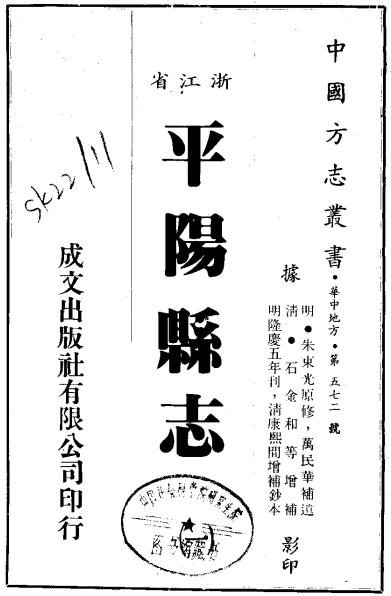 中國方志叢書•華中地方•第五七二號
據
明•朱東光原修，萬民華補遺
清•石金和等增補
明隆慶五年刊，清康熙間增補鈔本
影印
浙江省
平陽縣志
SK22/11
成文出版社有限公司印行